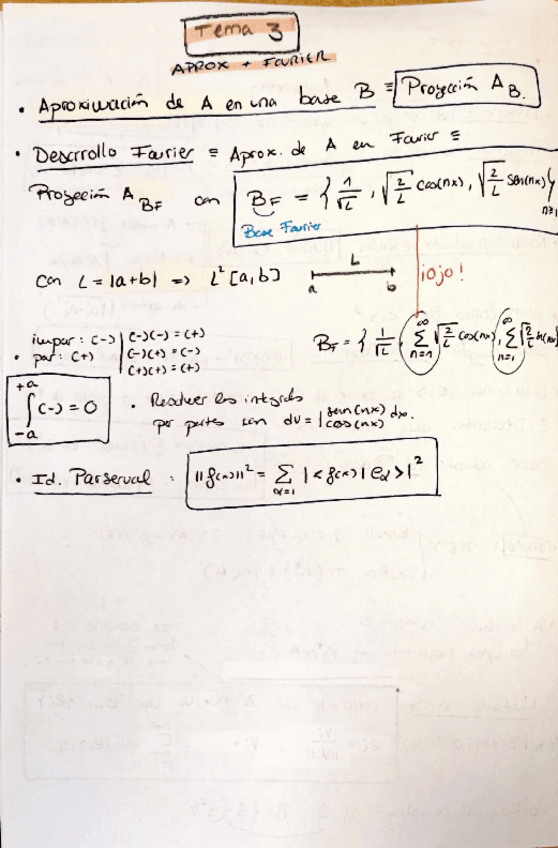 Tema 3
APROX + FOURIER
• Aproximación de A en una base B ≡ Proyección A_B.
• Desarrollo Fourier ≡ Aprox. de A en Fourier ≡
Proyección A_BF con B_F = { 1/√L, √(2/L) cos(nx), √(2/L) sen(nx) } n≥1
Base Fourier
con L = |a+b| => L²[a,b]
L
a b
¡ojo!
B_F = { 1/√L, ∑_{n=1}^{∞} √(2/L) cos(nx), ∑_{n=1}^{∞} √(2/L)
• impar: (-) | (-)(-) = (+)
par: (+) | (-)(+) = (-)
(+)(+) = (+)
∫_{-a}^{+a} (-) = 0
• Resolver las integrales
por partes con dv = | sen(nx) dx.
cos(nx)
• Id. Parserval : ||f(x)||² = ∑_{α=1} |<f(x)|e_α>|²